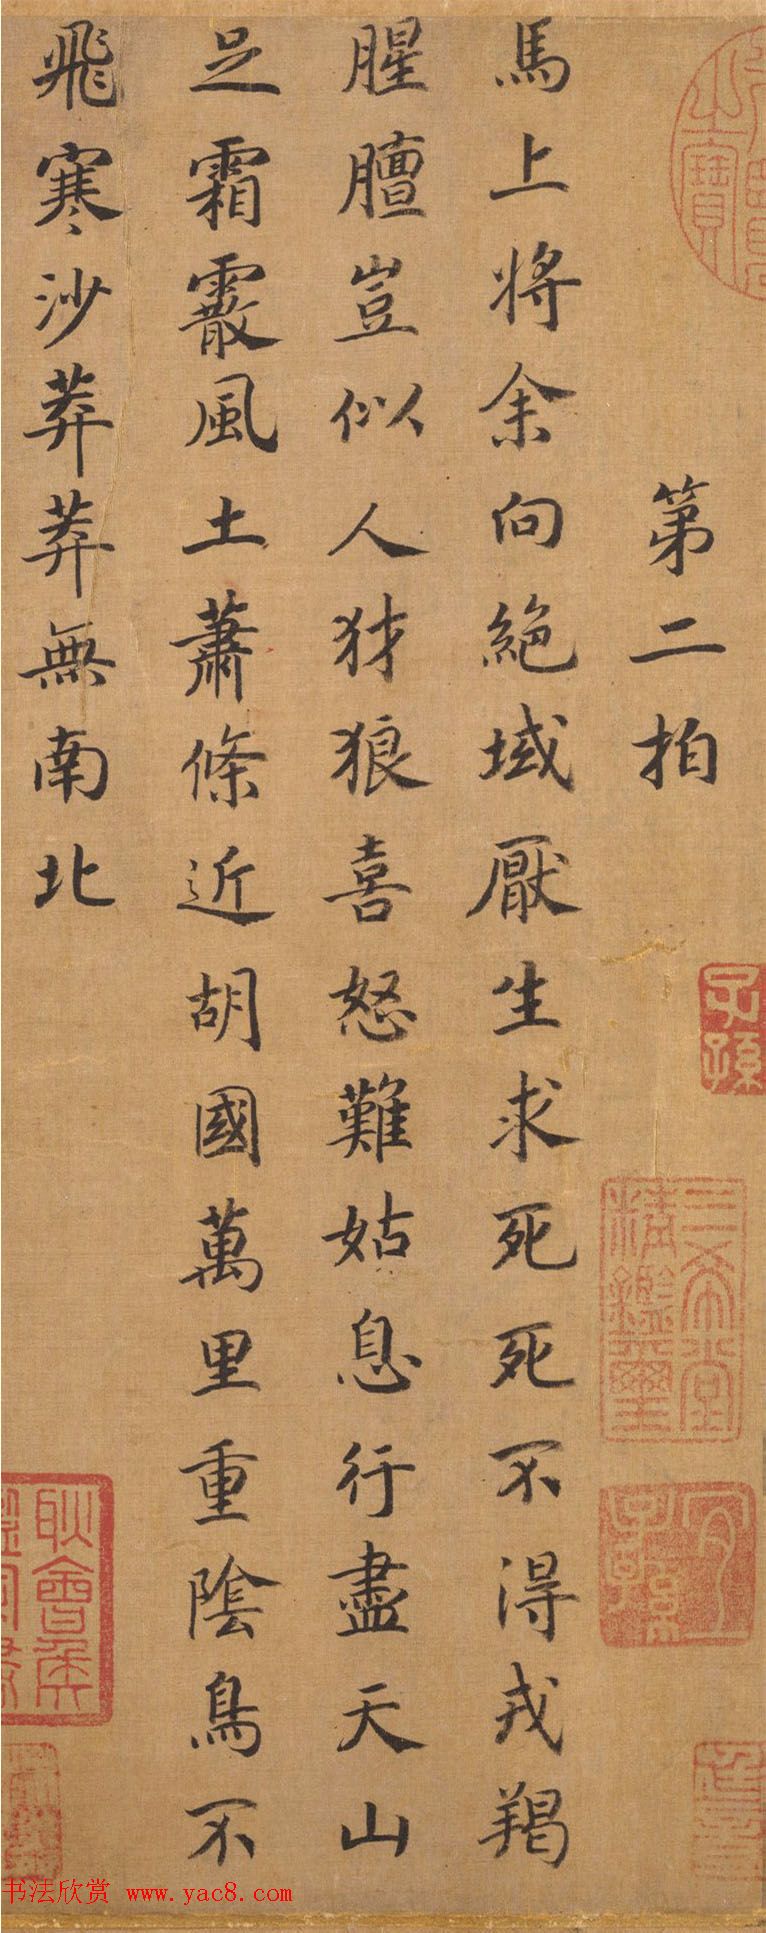 第二拍
馬上將余向絕域厭生求死死不得戎羯
腥膻豈似人豺狼喜怒難姑息行盡天山
足霜霰風土蕭條近胡國萬里重陰鳥不
飛寒沙莽莽無南北
子孫
三希堂
精鑑璽
宜
子孫
耿會侯
书法欣赏 www.yac8.com